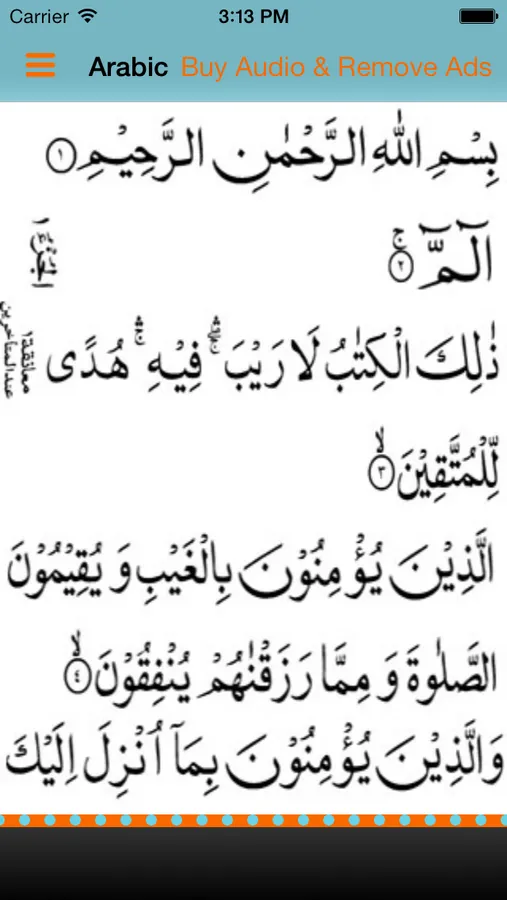 Carrier 3:13 PM
Arabic Buy Audio & Remove Ads
بِسْمِ اللهِ الرَّحْمٰنِ الرَّحِيْمِ ۝١
الٓمّٓ ۚ ۝٢
الجزء ١
ذٰلِكَ الْكِتٰبُ لَا رَيْبَ ۛۖ فِيْهِ ۛۚ هُدًى
معانقة ١
عند المتأخرين
لِّلْمُتَّقِيْنَ ۙ ۝٣
الَّذِيْنَ يُؤْمِنُوْنَ بِالْغَيْبِ وَ يُقِيْمُوْنَ
الصَّلٰوةَ وَ مِمَّا رَزَقْنٰهُمْ يُنْفِقُوْنَ ۙ ۝٤
وَالَّذِيْنَ يُؤْمِنُوْنَ بِمَآ اُنْزِلَ اِلَيْكَ